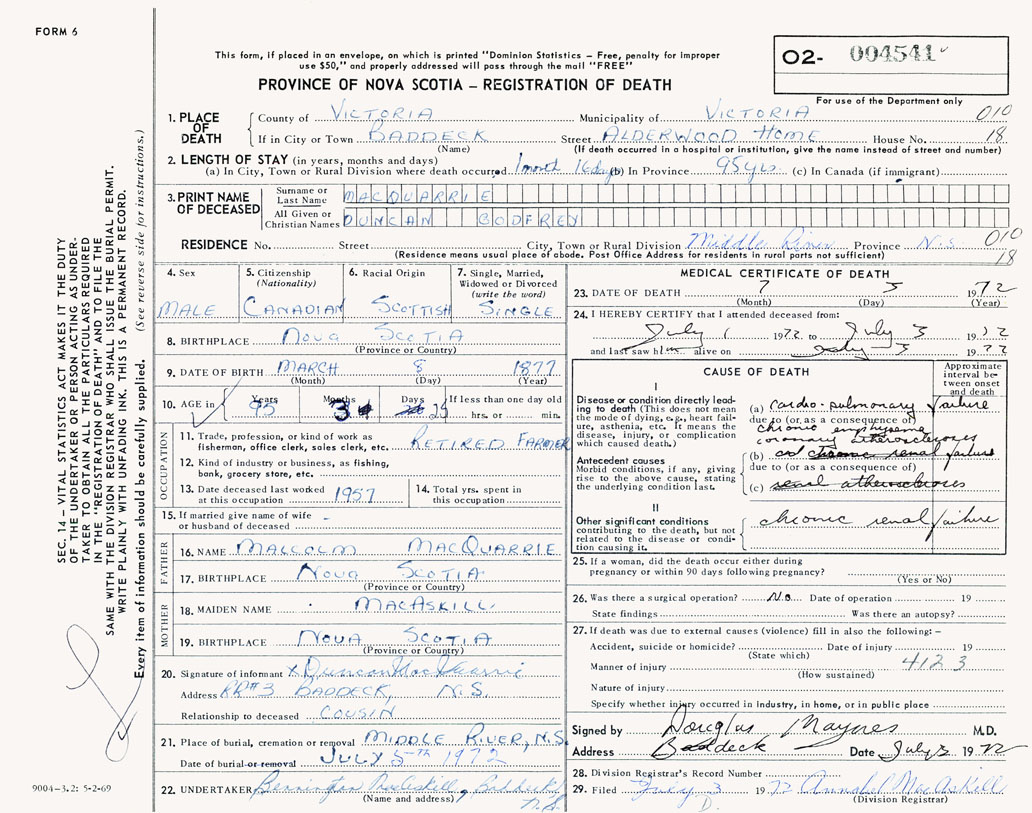 FORM 6
This form, if placed in an envelope, on which is printed "Dominion Statistics – Free, penalty for improper
use $50," and properly addressed will pass through the mail "FREE"
PROVINCE OF NOVA SCOTIA – REGISTRATION OF DEATH
02- 004541
For use of the Department only
SEC. 14 – VITAL STATISTICS ACT MAKES IT THE DUTY
OF THE UNDERTAKER OR PERSON ACTING AS UNDER-
TAKER TO OBTAIN ALL THE PARTICULARS REQUIRED
IN THE "REGISTRATION OF DEATH" AND TO FILE THE
SAME WITH THE DIVISION REGISTRAR WHO SHALL ISSUE THE BURIAL PERMIT.
WRITE PLAINLY WITH UNFADING INK. THIS IS A PERMANENT RECORD.
Every item of information should be carefully supplied. (See reverse side for instructions.)
1. PLACE OF DEATH
County of VICTORIA Municipality of VICTORIA 010
If in City or Town BADDECK Street ALDERWOOD HOME House No. 18
(Name) (If death occurred in a hospital or institution, give the name instead of street and number)
2. LENGTH OF STAY (in years, months and days)
(a) In City, Town or Rural Division where death occurred 1 month 16 days (b) In Province 95 yrs. (c) In Canada (if immigrant)
3. PRINT NAME OF DECEASED
Surname or Last Name MACQUARRIE
All Given or Christian Names DUNCAN GODFREY
RESIDENCE No. Street City, Town or Rural Division Middle River Province N.S. 010
(Residence means usual place of abode. Post Office Address for residents in rural parts not sufficient) 18
4. Sex
MALE
5. Citizenship
(Nationality)
CANADIAN
6. Racial Origin
SCOTTISH
7. Single, Married,
Widowed or Divorced
(write the word)
SINGLE
8. BIRTHPLACE NOVA SCOTIA
(Province or Country)
9. DATE OF BIRTH MARCH 8 1877
(Month) (Day) (Year)
10. AGE in Years Months Days If less than one day old
95 3 25 hrs. or min.
OCCUPATION
11. Trade, profession, or kind of work as
fisherman, office clerk, sales clerk, etc. RETIRED FARMER
12. Kind of industry or business, as fishing,
bank, grocery store, etc.
13. Date deceased last worked
at this occupation 1957
14. Total yrs. spent in
this occupation
15. If married give name of wife
or husband of deceased -
FATHER
16. NAME MALCOLM MACQUARRIE
17. BIRTHPLACE NOVA SCOTIA
(Province or Country)
MOTHER
18. MAIDEN NAME MACASKILL
19. BIRTHPLACE NOVA SCOTIA
(Province or Country)
20. Signature of informant x Duncan
Address RR#3 BADDECK, N.S.
Relationship to deceased COUSIN
21. Place of burial, cremation or removal MIDDLE RIVER, N.S.
Date of burial or removal JULY 5TH 1972
22. UNDERTAKER Baddeck,
(Name and address) N.S.
9004-3.2: 5-2-69
MEDICAL CERTIFICATE OF DEATH
23. DATE OF DEATH 7 3 1972
(Month) (Day) (Year)
24. I HEREBY CERTIFY that I attended deceased from:
July 1 1972 to July 3 1972
and last saw him alive on July 3 1972
CAUSE OF DEATH
Approximate
interval be-
tween onset
and death
I
Disease or condition directly lead-
ing to death (This does not mean
the mode of dying, e.g., heart fail-
ure, asthenia, etc. It means the
disease, injury, or complication
which caused death.)
(a) cardio-pulmonary failure
due to (or as a consequence of)
chronic emphysema
coronary atherosclerosis
Antecedent causes
Morbid conditions, if any, giving
rise to the above cause, stating
the underlying condition last.
(b) chronic renal failure
due to (or as a consequence of)
(c) renal atherosclerosis
II
Other significant conditions
contributing to the death, but not
related to the disease or condi-
tion causing it.
chronic renal failure
25. If a woman, did the death occur either during
pregnancy or within 90 days following pregnancy?
(Yes or No)
26. Was there a surgical operation? No Date of operation 19
State findings Was there an autopsy?
27. If death was due to external causes (violence) fill in also the following: –
Accident, suicide or homicide? Date of injury 19
(State which)
Manner of injury 4123
(How sustained)
Nature of injury
Specify whether injury occurred in industry, in home, or in public place
Signed by Douglas Maynes M.D.
Address Baddeck Date July 3 1972
28. Division Registrar's Record Number
29. Filed July 3 1972 Annabel MacAskill
D. (Division Registrar)